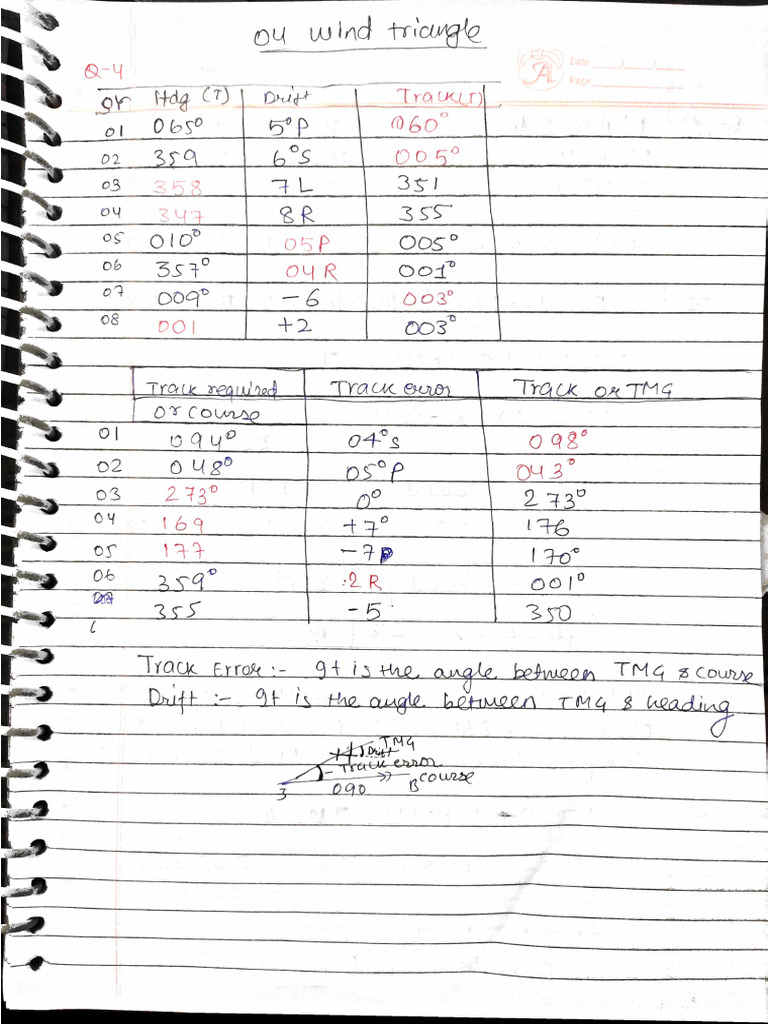 04 wind triangle
Date
Page
Q-4
gr Hdg (T) Drift Track(T)
01 065° 5°P 060°
02 359 6°S 005°
03 358 7L 351
04 347 8R 355
05 010° 05P 005°
06 357° 04R 001°
07 009° -6 003°
08 001 +2 003°
Track required Track error Track or TMG
or course
01 094° 04°S 098°
02 048° 05°P 043°
03 273° 0° 273°
04 169 +7° 176
05 177 -7 170°
06 359° 2R 001°
355 -5 350
Track Error:- It is the angle between TMG & course
Drift :- It is the angle between TMG & heading
TMG
Drift
Track error
course
3 090 B